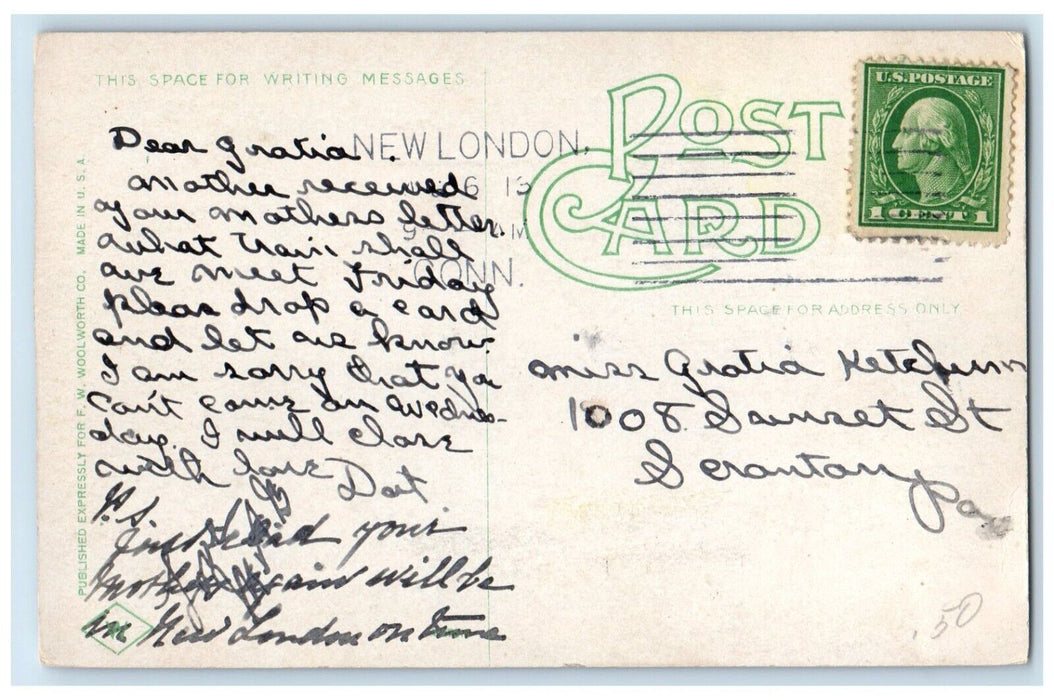 THIS SPACE FOR WRITING MESSAGES
POST CARD
U.S. POSTAGE
1 CENT 1
NEW LONDON,
6
CONN.
PUBLISHED EXPRESSLY FOR F. W. WOOLWORTH CO. MADE IN U. S. A.
Dear Gratia.
Mother received
your Mothers letter
what train shall
we meet Friday
pleas drop a card
and let us know
I am sorry that you
can't come on Wednes-
day. I will close
with love Dot
P.S.
your
train will be
in New London on time
THIS SPACE FOR ADDRESS ONLY
Miss Gratia Ketchum
1008 Sunset St
Scranton
Pa
.50